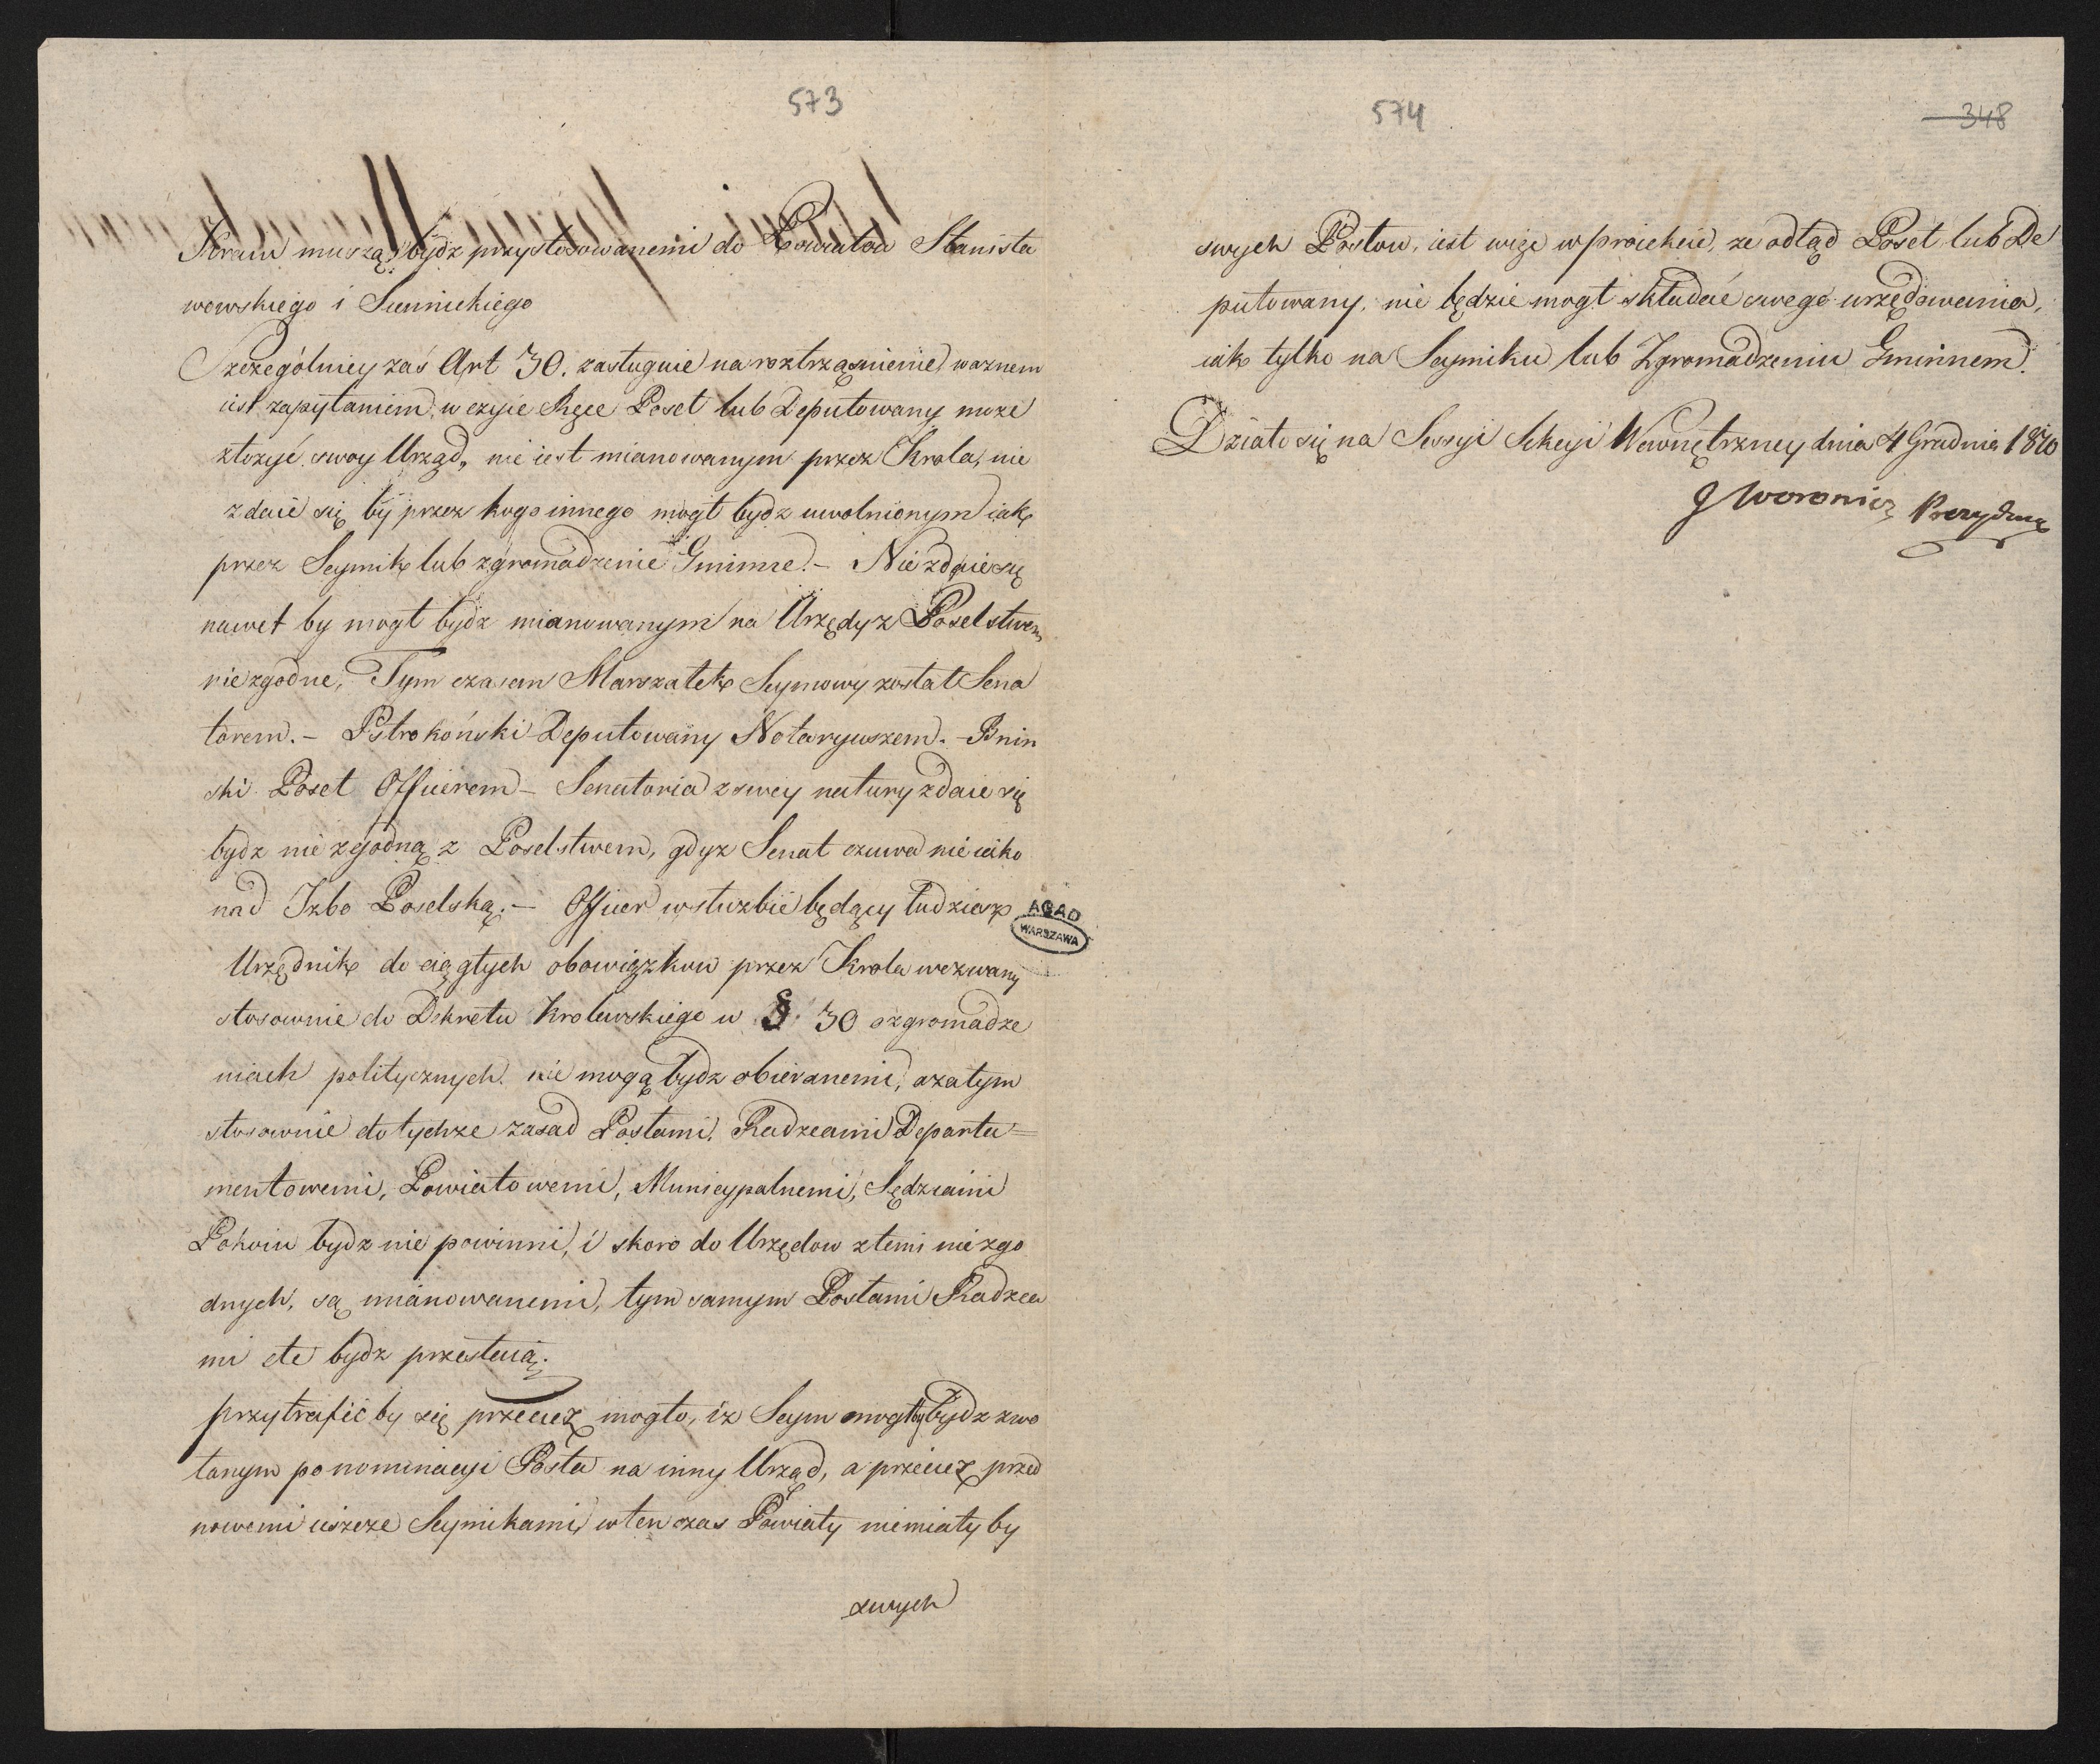 573
Kraiu muszą bydz przystosowanemi do Powiatow Stanisła
wowskiego i Siennickiego
Szczególniey zaś Art 30. zasługuie na roztrząsnienie) waznem
iest zapytaniem, w czyie Ręce Poseł lub Deputowany moze
złozyć swoy Urząd, nie iest mianowanym przez Krola, nie
zdaie się by przez kogo innego mogł bydz uwolnionym iak
przez Seymik lub zgromadzenie Gminne.- Nie zdaie się
nawet by mogł bydz mianowanym na Urzędy z Poselstwem
niezgodne, Tym czasem Marszałek Seymowy został Sena
torem.- Pstrokoński Deputowany Notaryuszem.- Bnin
ski Poseł Officirem- Senatoria z swey natury zdaie się
bydz nie zgodną z Poselstwem, gdyz Senat czuwa nieiako
nad Izbo Poselską.- Officer w służbie będący tudziesz
Urzędnik do ciągłych obowiązkow przez Krola wezwany
stosownie do Dekretu Krolewskiego w § 30 o zgromadze
niach politycznych. nie mogą bydz obieranemi, a zatym
stosownie do tychze zasad Posłami, Radzcami Departa=
mentowemi, Powiatowemi, Municypalnemi, Sędziami
Pokoiu bydz nie powinni, i skoro do Urzędow z temi niezgo
dnych, są mianowanemi, tym samym Posłami Radzca
mi etc bydz przestaią.
przytrafić by się przeciez mogło, iz Seym mogłby bydz zwo
łanym po nominacyi Posła na inny Urząd, a przeciez przed
nowemi ieszcze Seymikami, w ten czas Powiaty niemiały by
swych
AGAD
WARSZAWA
574
348
swych Posłow, iest więc w proiekcie, ze odtąd Poseł lub De
putowany, nie będzie mogł składać swego urzędowania,
iak tylko na Seymiku lub Zgromadzeniu Gminnem.
Działo się na Sessyi Sekcyi Wewnętrzney dnia 4 Grudnia 1810
J Woronicz Prezyduię